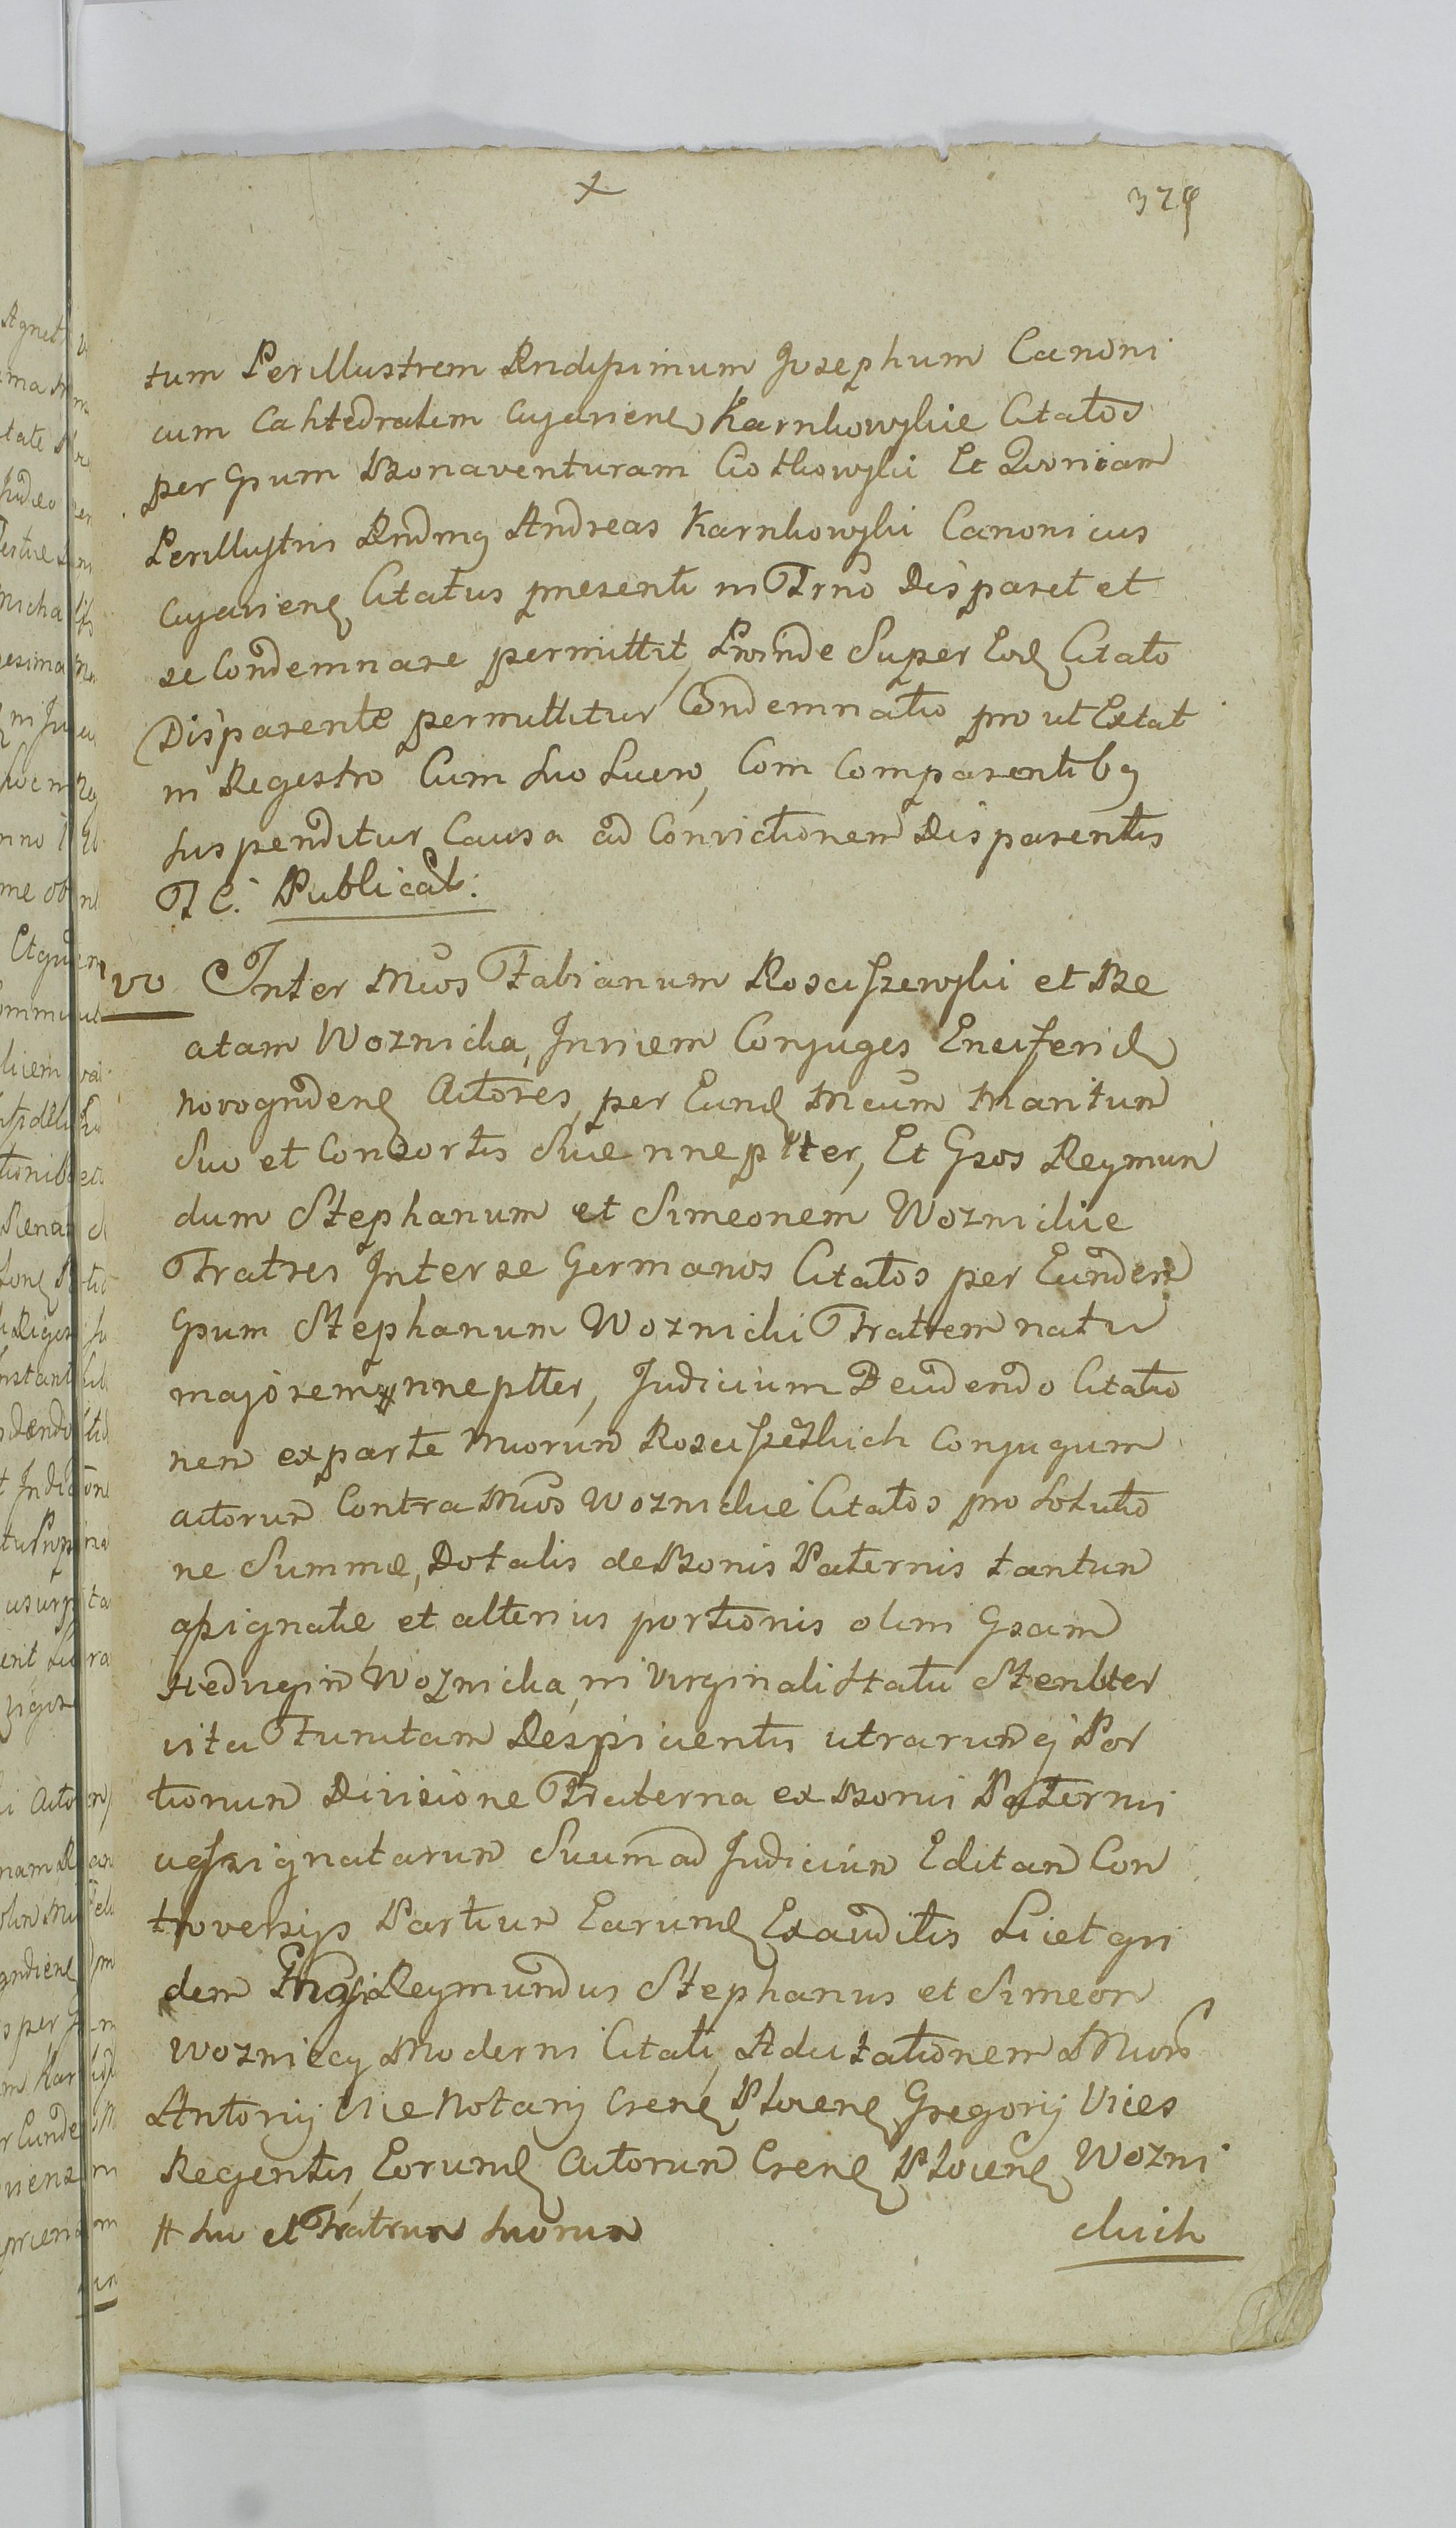 +
379
tum Perillustrem Rndissimum Josephum Canoni
cum Cahtedralem Cujaviens Karnkowskie Citatos
per Gsum Bonaventuram Ciotkowski Et Quoniam
Perillustris Rndmq Andreas Karnkowski Canonicus
Cujaviens Citatus presenti in Trno Disparet et
se Condemnare permittit, Proinde Super Eod Citato
Disparente permittitur Condemnatio pro ut Extat
in Regestro Cum suo Lucro, Com Comparentibq
suspenditur Causa ad Convictionem Disparentis
T C. Publicat:
vo Inter Mcos Fabianum Rosciszewski et Be
atam Woznicka, Invicem Conjuges Ensiferid
Novogrdens Actores, per Eund Mcum Maritum
Suo et Consortis Sue nne plter, Et Gsos Reymun
dum Stephanum et Simeonem Woznickie
Fratres Inter se Germanos Citatos per Eundem
Gsum Stephanum Woznicki Fratrem natu
majorem # nne plter, Judicium Decidendo Citatio
nem ex parte Mcorum Conjugum
actorum Contra Mcos Woznickie Citatos pro Solutio
ne Summæ, Dotalis de Bonis Paternis tantum
assignatæ et alterius portionis olim Gsam
Hedvigim Woznicka, in Virginali Statu Steriliter
vita Functam Respicientis utrarumq Por
tionum Divisione Fraterna ex Bonis Paternis
assignatarum Suum ad Judicium Editam Con
troversijs Partium Earumd Exauditis Licet qui
dem Reymundus Stephanus et Simeon
Wozniccy Moderni Citati, Ad Citationem Mcors
Antonij Vice Notarij Crens Plocens Gregorij Vices
Regentis, Eorumd Actorum Crens Plocens Wozni
# Suo et Fratrum suorum
ckich